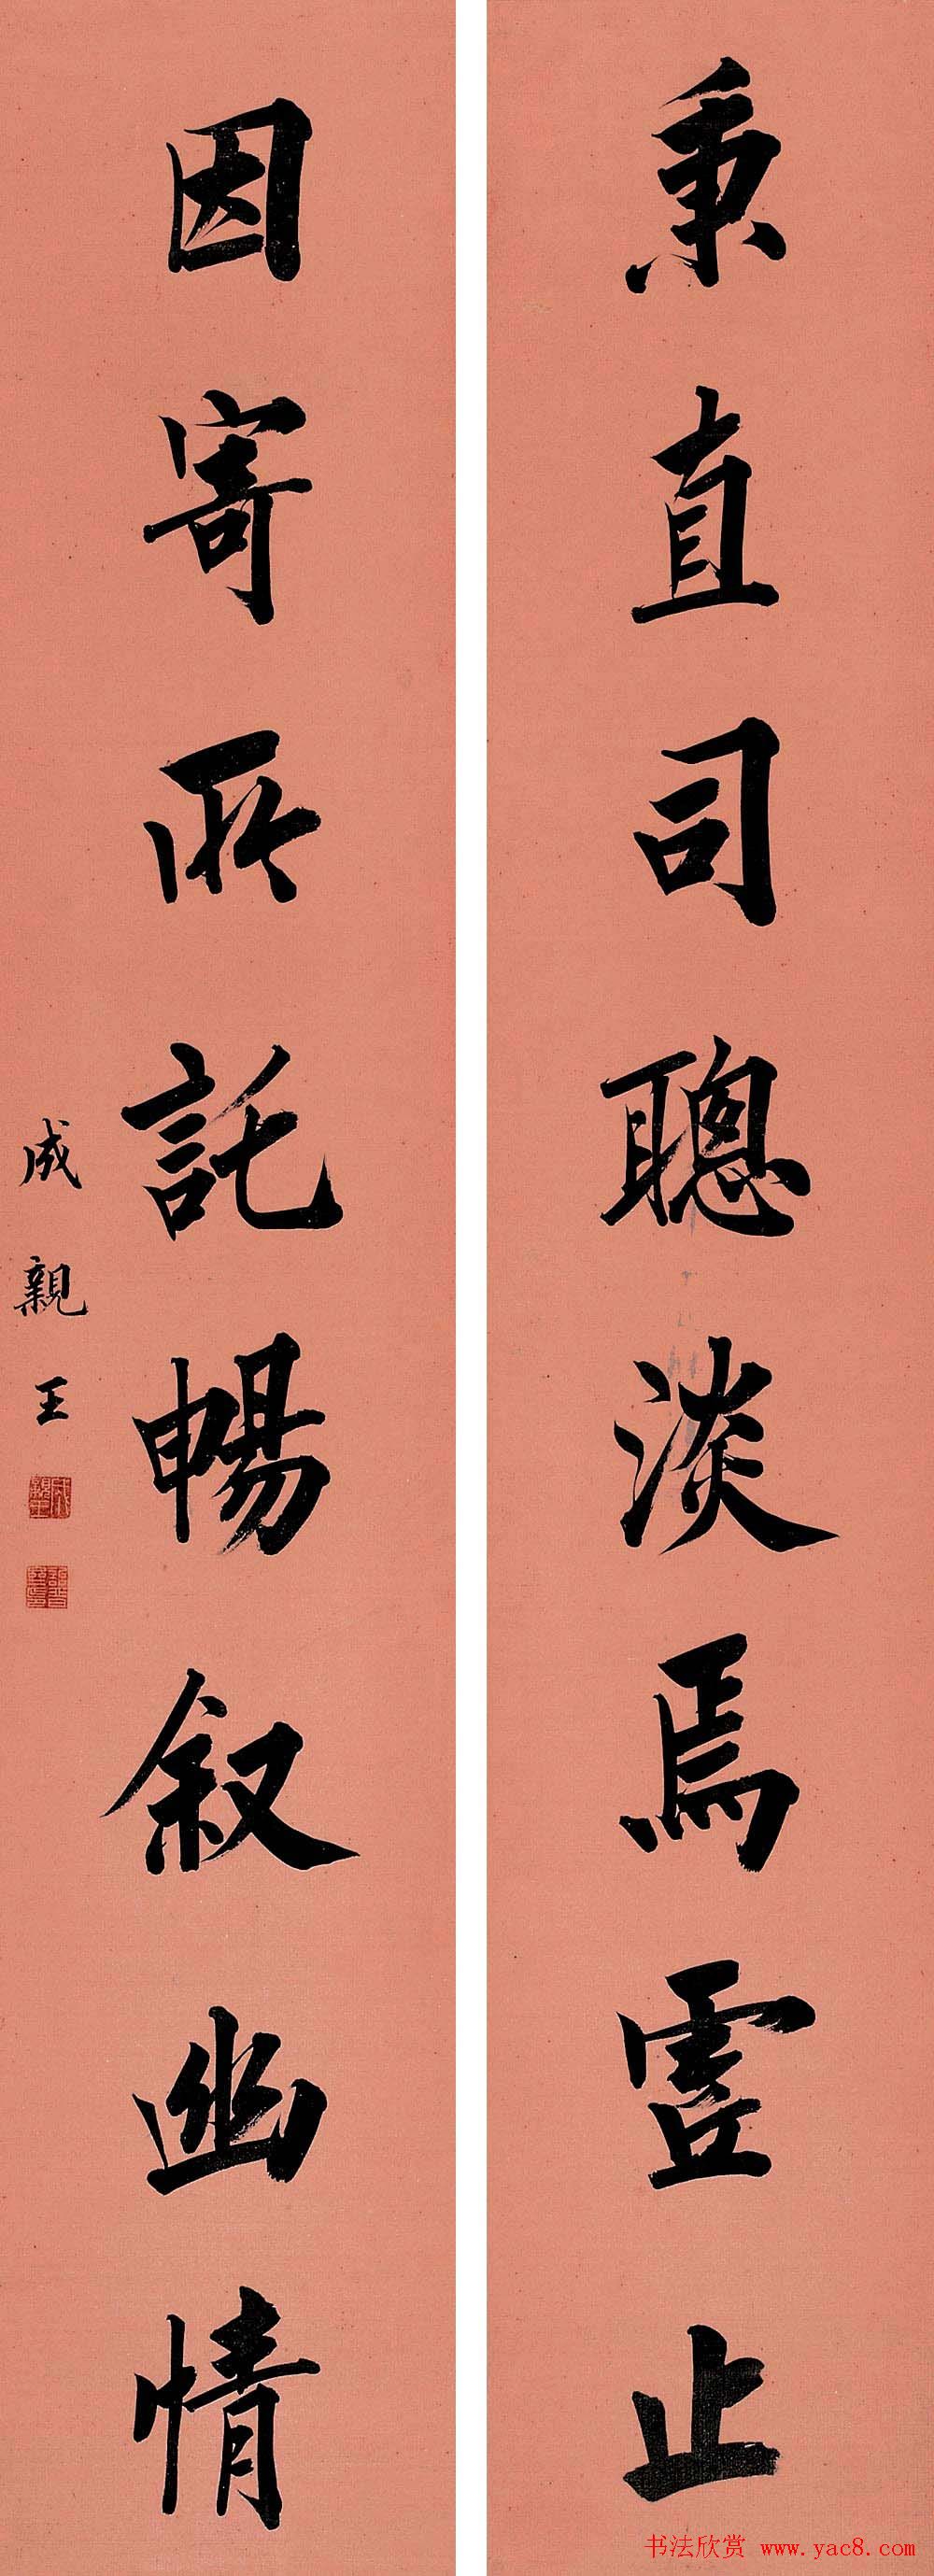 秉直司聰淡焉虛止
因寄所託暢叙幽情
成親王
書法欣赏 www.yac8.com